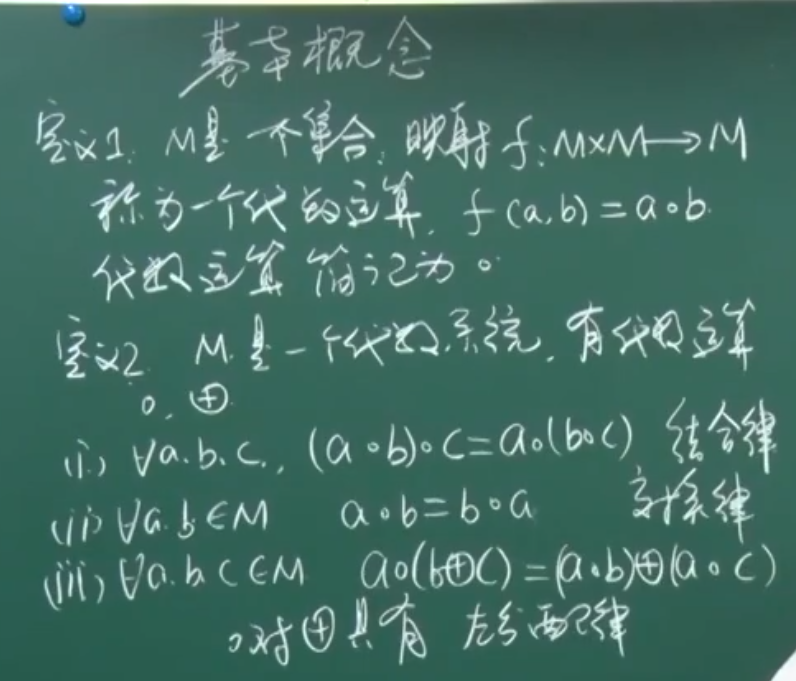 基本概念
定义1. M是一个集合, 映射 f: M×M→M
称为一个代数运算, f(a,b)=a∘b.
代数运算简记为∘
定义2. M是一个代数系统, 有代数运算
∘, ⊕.
(i) ∀a.b.c., (a∘b)∘c=a∘(b∘c) 结合律
(ii) ∀a.b∈M a∘b=b∘a 交换律
(iii) ∀a.b.c∈M a∘(b⊕c)=(a∘b)⊕(a∘c)
∘对⊕具有 左分配律